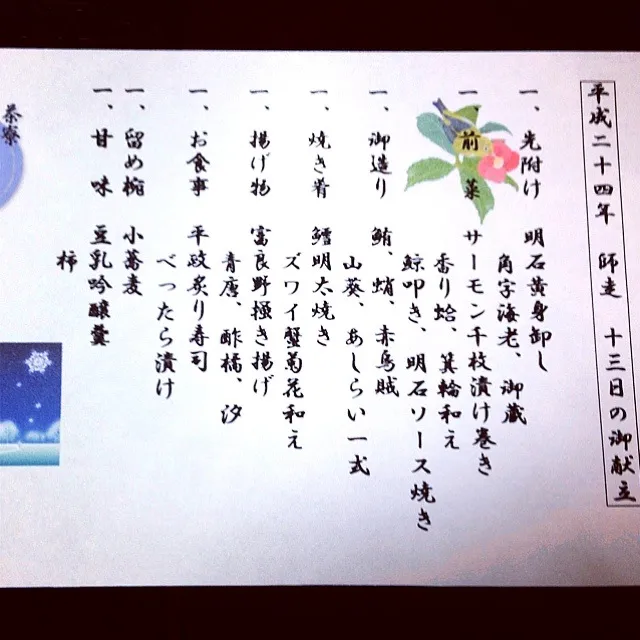 平成二十四年 師走 十三日の御献立
一、先附け 明石黄身卸し
角字海老、御蔵
一 前菜 サーモン千枚漬け巻き
香り蛤、箕輪和え
鯨叩き、明石ソース焼き
一、御造り 鮪、蛸、赤烏賊
山葵、あしらい一式
一、焼き肴 鱈明太焼き
ズワイ蟹菊花和え
一、揚げ物 富良野掻き揚げ
青唐、酢橘、汐
一、お食事 平政炙り寿司
べったら漬け
一、留め椀 小蕎麦
一、甘味 豆乳吟醸羹
柿
茶寮